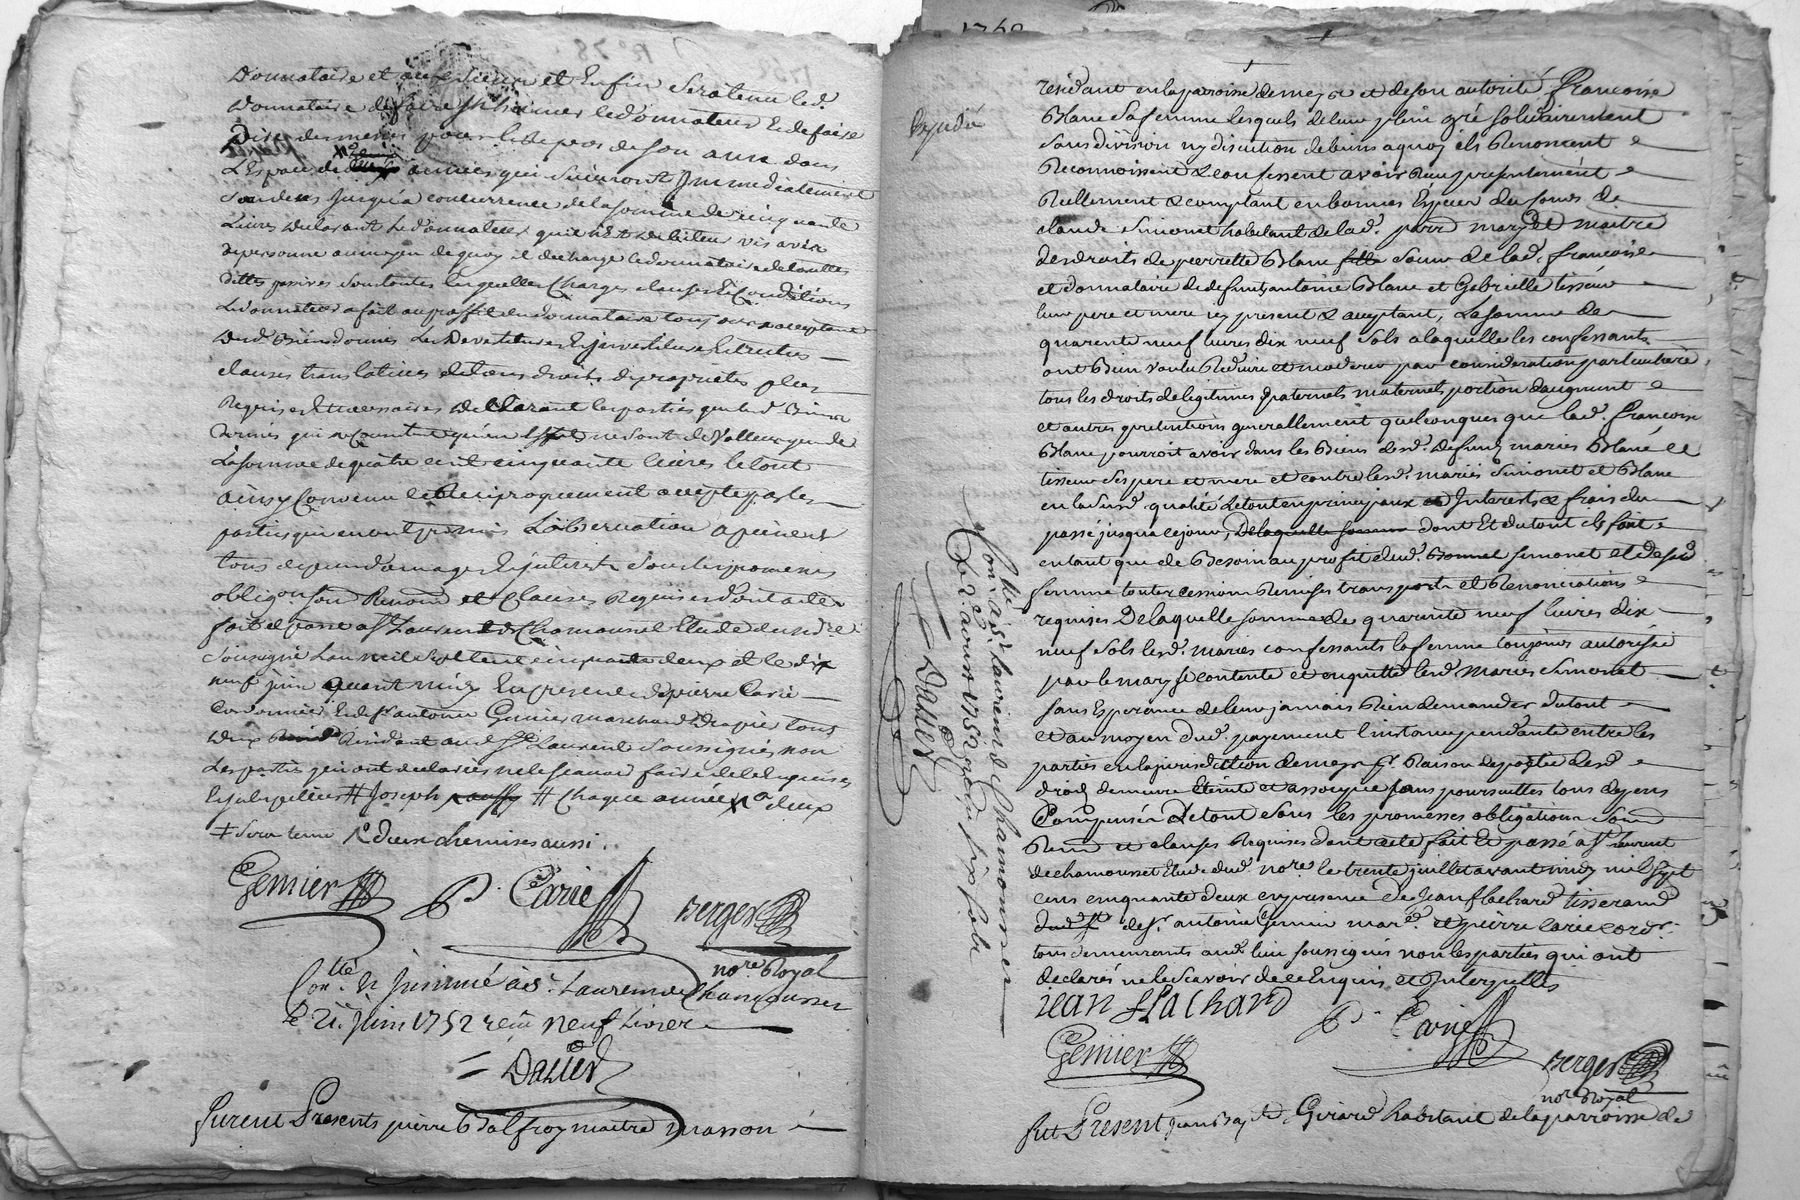 donnataire et aux siens et Enfin sera tenu led.
donnataire de faire inhumer le donnateur Et de faire
dire des messes pour le Repos de son ame dans
L'Espace de années qui suivront Immediatement
son deces jusqu'à concurrence de la somme de cinquante
Livres declarant le donnateur qu'il n'Est debiteur vis avis
de personne au moyen de quoy il decharge le donnataire de touttes
dettes passives sous toutes lesquelles Charges clauses Et Conditions
Le donnateur a fait au proffit du donnataire tous acceptant
desd. Biens donnés Les Devestitures Et investitures Et autres
clauses translatives de tous droits de proprietés plus
Requises & necessaires declarant les parties que lesd. Biens
donnés ne sont de valleur que de
La somme de quatre cent cinquante livres le tout
ainsy Convenu et Reciproquement accepté par les
parties qui en ont promis L'observation a peine de
tous depens dommages Et interests sous les promesses
obligaon. soum Renonon et Clauses Requises dont acte
fait et passé a St Laurent de Chamousset Etude du no.re
soussigné L'an mil sept cent cinquante deux et le dix
neuf juin avant midy En presence de pierre Carié
Cordonnier Et de Sr antoine Genier marchand Drapier tous
deux Residant aud. St Laurent soussignés non
Les parties qui ont declarées ne le scavoir faire de ce Enquises
Et interpellées # Joseph # Chaque année deux
≠ sera tenu & deux chemises aussi.
Gemier P. Carié Berger
no.re Royal
Con.llé & insinué à St. Laurent de Chamousset
Le 21. Juin 1752 reçu neuf livres
= Dallier
furent Presents pierre Balfroy maitre masson
1768
Expedié
residant en la paroisse de meys et de son autorité françoise
Blanc sa femme lesquels de leur plein gré solidairement
sans division ny discution de biens a quoy ils Renoncent
Reconnoissent & confessent avoir Reçu presentement
Réellement & comptant en bonnes Especes du sieur de
claude Simonet habitant de lad. parr. mary et maitre
des droits de pierrette Blanc sœur de lad. françoise
et donnataire de defunts antoine Blanc et Gebrielle tisseur
leur pere et mere icy present & acceptant, La somme de
quarente neuf livres dix neuf sols a laquelle les confessants
ont Bien voulu Reduire et moderer par consideration particuliere
tous les droits de legitimes paternels maternels portion d'augment
et autres pretentions generallement quelconques que lad. françoise
Blanc pourroit avoir dans les Biens desd. defunts mariés Blanc et
tisseur ses pere et mere et contre lesd. mariés Simonet et Blanc
en lad. qualité Le tout en principaux Interests & frais du
passé jusqu'a ce jour, De laquelle somme dont Et du tout ils font
entant que de Besoin au profit dud. Simonet et de sad.
femme toutes cessions Remises transports et Renonciations
requises De laquelle somme de quarente neuf livres dix
neuf sols lesd. mariés confessants la femme toujours autorisée
par le mary se contente et en quitte lesd. mariés Simonet
sans Esperance de leur jamais Rien demander du tout
et au moyen dud. payement l'instance pendante entre les
parties en la jurisdiction de meys pr. Raison de partie desd.
droits demeure Eteinte et assoupie sans poursuittes tous depens
Compensés Le tout sous les promesses obligations soum
Renon et clauses Requises dont acte fait Et passé a St laurent
de chamousset Etude dud. no.re le trente juillet avant midy mil sept
cens cinquante deux en presence de jean flachard tisserand
de sr. antoine Gemier mar.d et pierre carié cord.r
tous demeurants aud. lieu soussignés non les parties qui ont
declarés ne le scavoir de ce Enquis et Interpellés
jean flachard P. Carié
Gemier Berger
no.re Royal
fut Present jean Bap.te Girard habitant de la parroisse de
Con.llé à St. laurent de Chamousset
Le 2. aoust 1752 reçu six sols
= Dallier